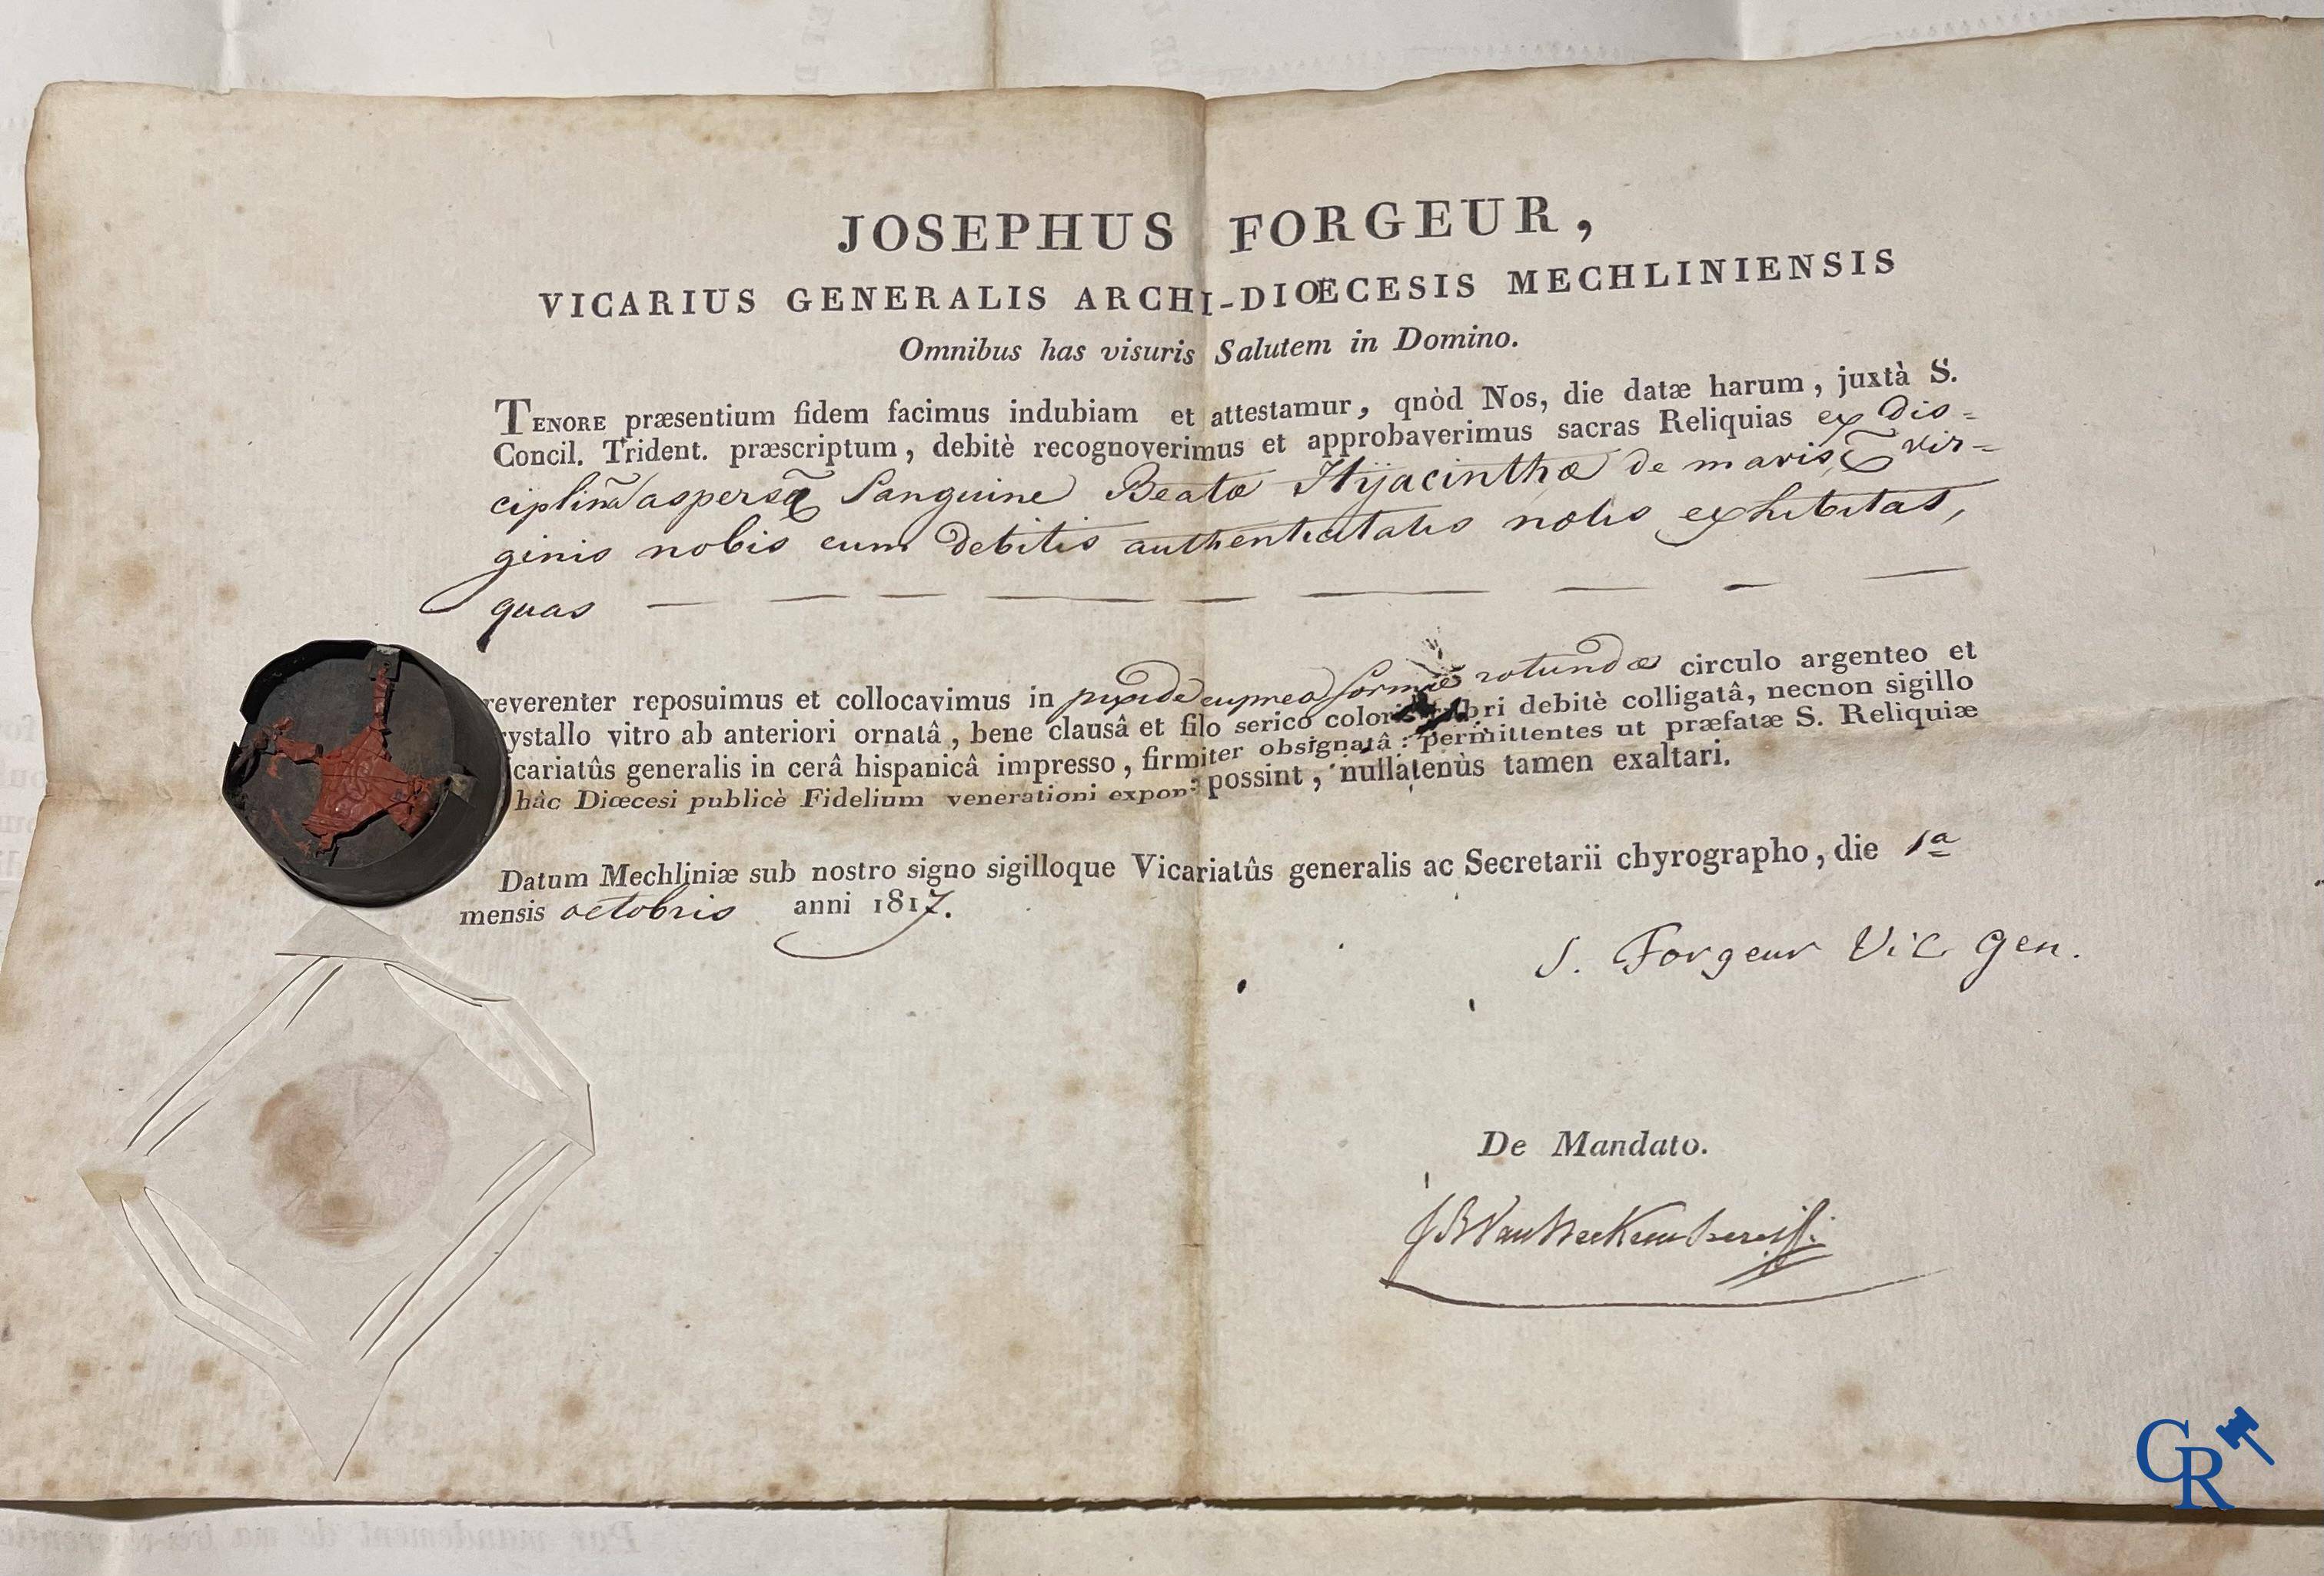 JOSEPHUS FORGEUR,
VICARIUS GENERALIS ARCHI-DIŒCESIS MECHLINIENSIS
Omnibus has visuris Salutem in Domino.
TENORE præsentium fidem facimus indubiam et attestamur, qnòd Nos, die datæ harum, juxtà S.
Concil. Trident. præscriptum, debitè recognoverimus et approbaverimus sacras Reliquias ex dis=
ciplinâ aspersâ Sanguine Beatæ Hijacinthæ de maris, vir=
ginis nobis cum debitis authenticitatis nobis exhibitas,
quas
reverenter reposuimus et collocavimus in pyxide cuprea formæ rotundæ circulo argenteo et
rystallo vitro ab anteriori ornatâ, bene clausâ et filo serico coloris rubri debitè colligatâ, necnon sigillo
icariatûs generalis in cerâ hispanicâ impresso, firmiter obsignatâ: permittentes ut præfatæ S. Reliquiæ
hâc Diœcesi publicè Fidelium venerationi expon: possint, nullatenùs tamen exaltari.
Datum Mechliniæ sub nostro signo sigilloque Vicariatûs generalis ac Secretarii chyrographo, die 1a
mensis octobris anni 1817.
J. Forgeur Vic Gen.
De Mandato.
CR